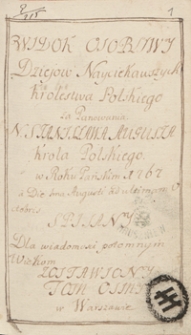 1
WIDOK OSOBLIWY
Dzieiow Nayciekawszych
Krolestwa Polskiego
Za Panowania
STANISŁAWA AUGUSTA
Krola Polskiego
w Roku Pańskim 1767
Die 1ma Augusti
SPISANY
Dla wiadomości potomnym
Wiekom
ZOSTAWIONY
TOM OSMY
w Warszawie